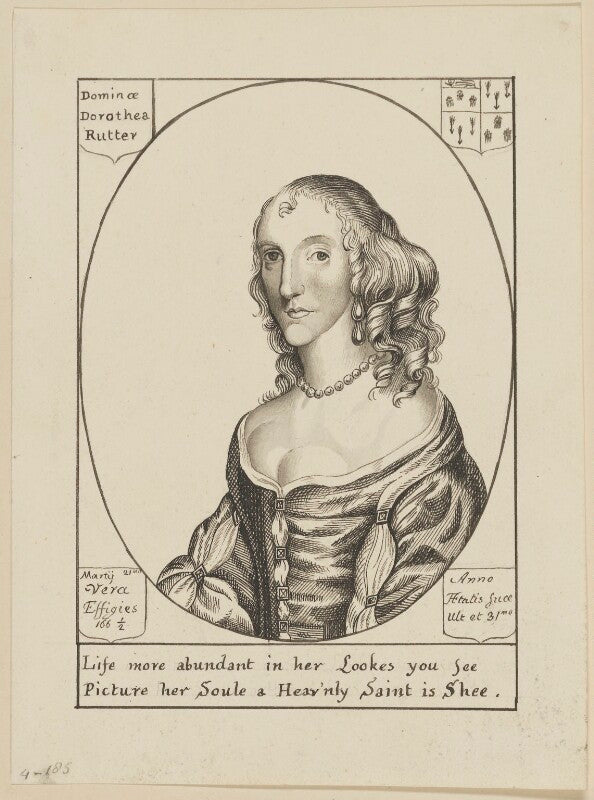 Dominæ
Dorothea
Rutter
Martij 21mo
Vera
Effigies
166 ½
Anno
Ætatis suæ
Ult et 31mo
Life more abundant in her Lookes you See
Picture her Soule a Heav'nly Saint is Shee.
4-185